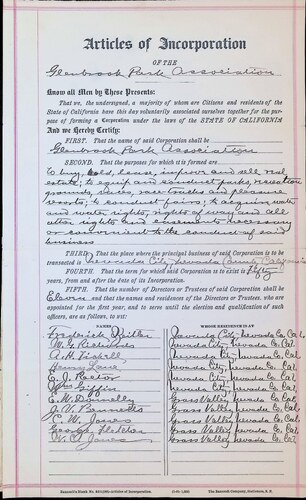 Articles of Incorporation
OF THE
Glenbrook Park Association
Know all Men by These Presents:
That we, the undersigned, a majority of whom are Citizens and residents of the
State of California have this day voluntarily associated ourselves together for the pur-
pose of forming a Corporation under the laws of the STATE OF CALIFORNIA
And we Hereby Certify:
FIRST. That the name of said Corporation shall be
Glenbrook Park Association
SECOND. That the purposes for which it is formed are
To buy, hold, lease, improve and sell real
estate; to equip and conduct parks, recreation
grounds, rinks, race tracks and pleasure
resorts; to conduct fairs; to acquire water
and water rights, rights of way and all
other rights and easements necessary
or convenient to the conduct of said
business
THIRD. That the place where the principal business of said Corporation is to be
transacted is Nevada City, Nevada County, California
FOURTH. That the term for which said Corporation is to exist is Fifty
years, from and after the date of its Incorporation.
FIFTH. That the number of Directors or Trustees of said Corporation shall be
Eleven and that the names and residences of the Directors or Trustees, who are
appointed for the first year, and to serve until the election and qualification of such
officers, are as follows, to wit:
NAMES WHOSE RESIDENCE IS AT
Frederick Nevada City, Nevada Co. Cal.
W. G. Richards Nevada City, Nevada Co. Cal.
A. H. Nevada City Nevada Co. Cal
Henry Lane Nevada City, Nevada Co. Cal.
E. J. Nevada City, Nevada Co. Cal.
Giffin Nevada City, Nevada Co. Cal.
E. W. Donnelly Grass Valley, Nevada Co. Cal.
J. V. Grass Valley, Nevada Co. Cal.
C. W. Jones Grass Valley, Nevada Co. Cal.
George Fletcher Grass Valley, Nevada Co. Cal.
Jones Grass Valley, Nevada Co. Cal.